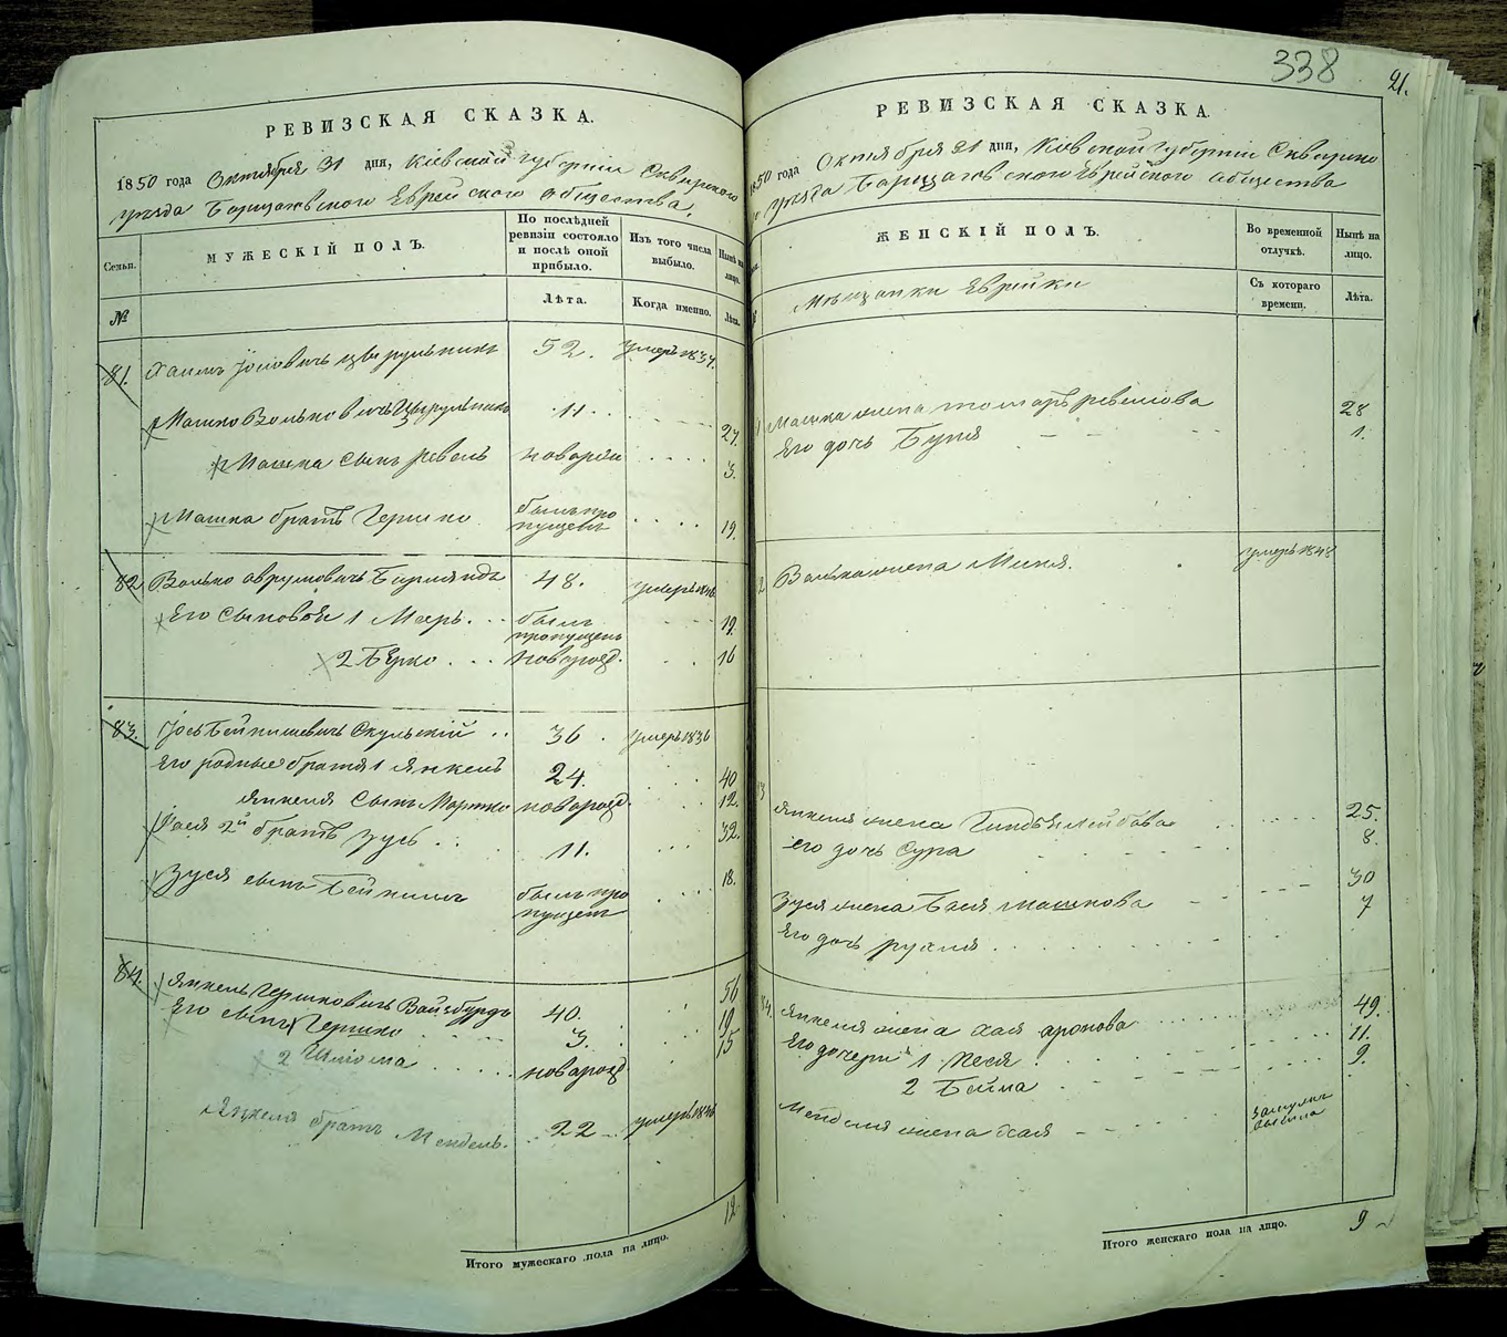 РЕВИЗСКАЯ СКАЗКА.
1850 года Октября 31 дня, Кіевской губерніи Сквирского
уѣзда Борщаговского Еврейского общества.
Семьи.
МУЖЕСКІЙ ПОЛЪ.
По послѣдней ревизіи состояло и послѣ оной прибыло.
Изъ того числа выбыло.
Нынѣ на лицо.
№
Лѣта.
Когда именно.
Лѣта.
81. Хаимъ Іосіовичъ Цырульникъ 52. умеръ 1837.
Машко Вольковичъ Цырульникъ 11. 27.
Машка сынъ Ревель новорож 3.
Машка братъ Гершко былъ пропущенъ 19.
82 Волько Аврумовичъ 48. умеръ 1846
Его сыновья 1 Мееръ. былъ пропущенъ 19.
2 Берко новорожд. 16
83. Іось Бейнишевичъ Скульскій 36. умеръ 1836
Его родные братья 1 Янкель 24. 40
Янкеля сынъ Мортко новорожд. 12.
Іося 2й братъ Зусь 11. 32.
Зуся сынъ Бейнишъ былъ пропущенъ 18.
84. Янкель Гершковичъ Вайзбурдъ 40. 56
Его сынъ Гершко 3. 19
2 Шліома новорожд 15
Янкеля братъ Мендель. 22 умеръ 1846
12
Итого мужескаго пола на лицо.
338
21.
РЕВИЗСКАЯ СКАЗКА.
1850 года Октября 31 дня, Кіевской губерніи Сквирско
уѣзда Борщаговского Еврейского общества
ЖЕНСКІЙ ПОЛЪ.
Во временной отлучкѣ.
Нынѣ на лицо.
Мѣщанки Еврейки
Съ котораго времени.
Лѣта.
Машка жена 28
Его дочь Буня 1.
2 Волька жена Миня. умеръ 1848
3 Янкеля жена Лейбова 25.
его дочь Сура 8.
Зуся жена Бася Машкова 30
Его дочь Рухля 7
84. Янкеля жена Хая Аронова 49.
Его дочери 1 Песя 11.
2 Бейма 9.
Менделя жена Хая замужъ вышла
9
Итого женскаго пола на лицо.